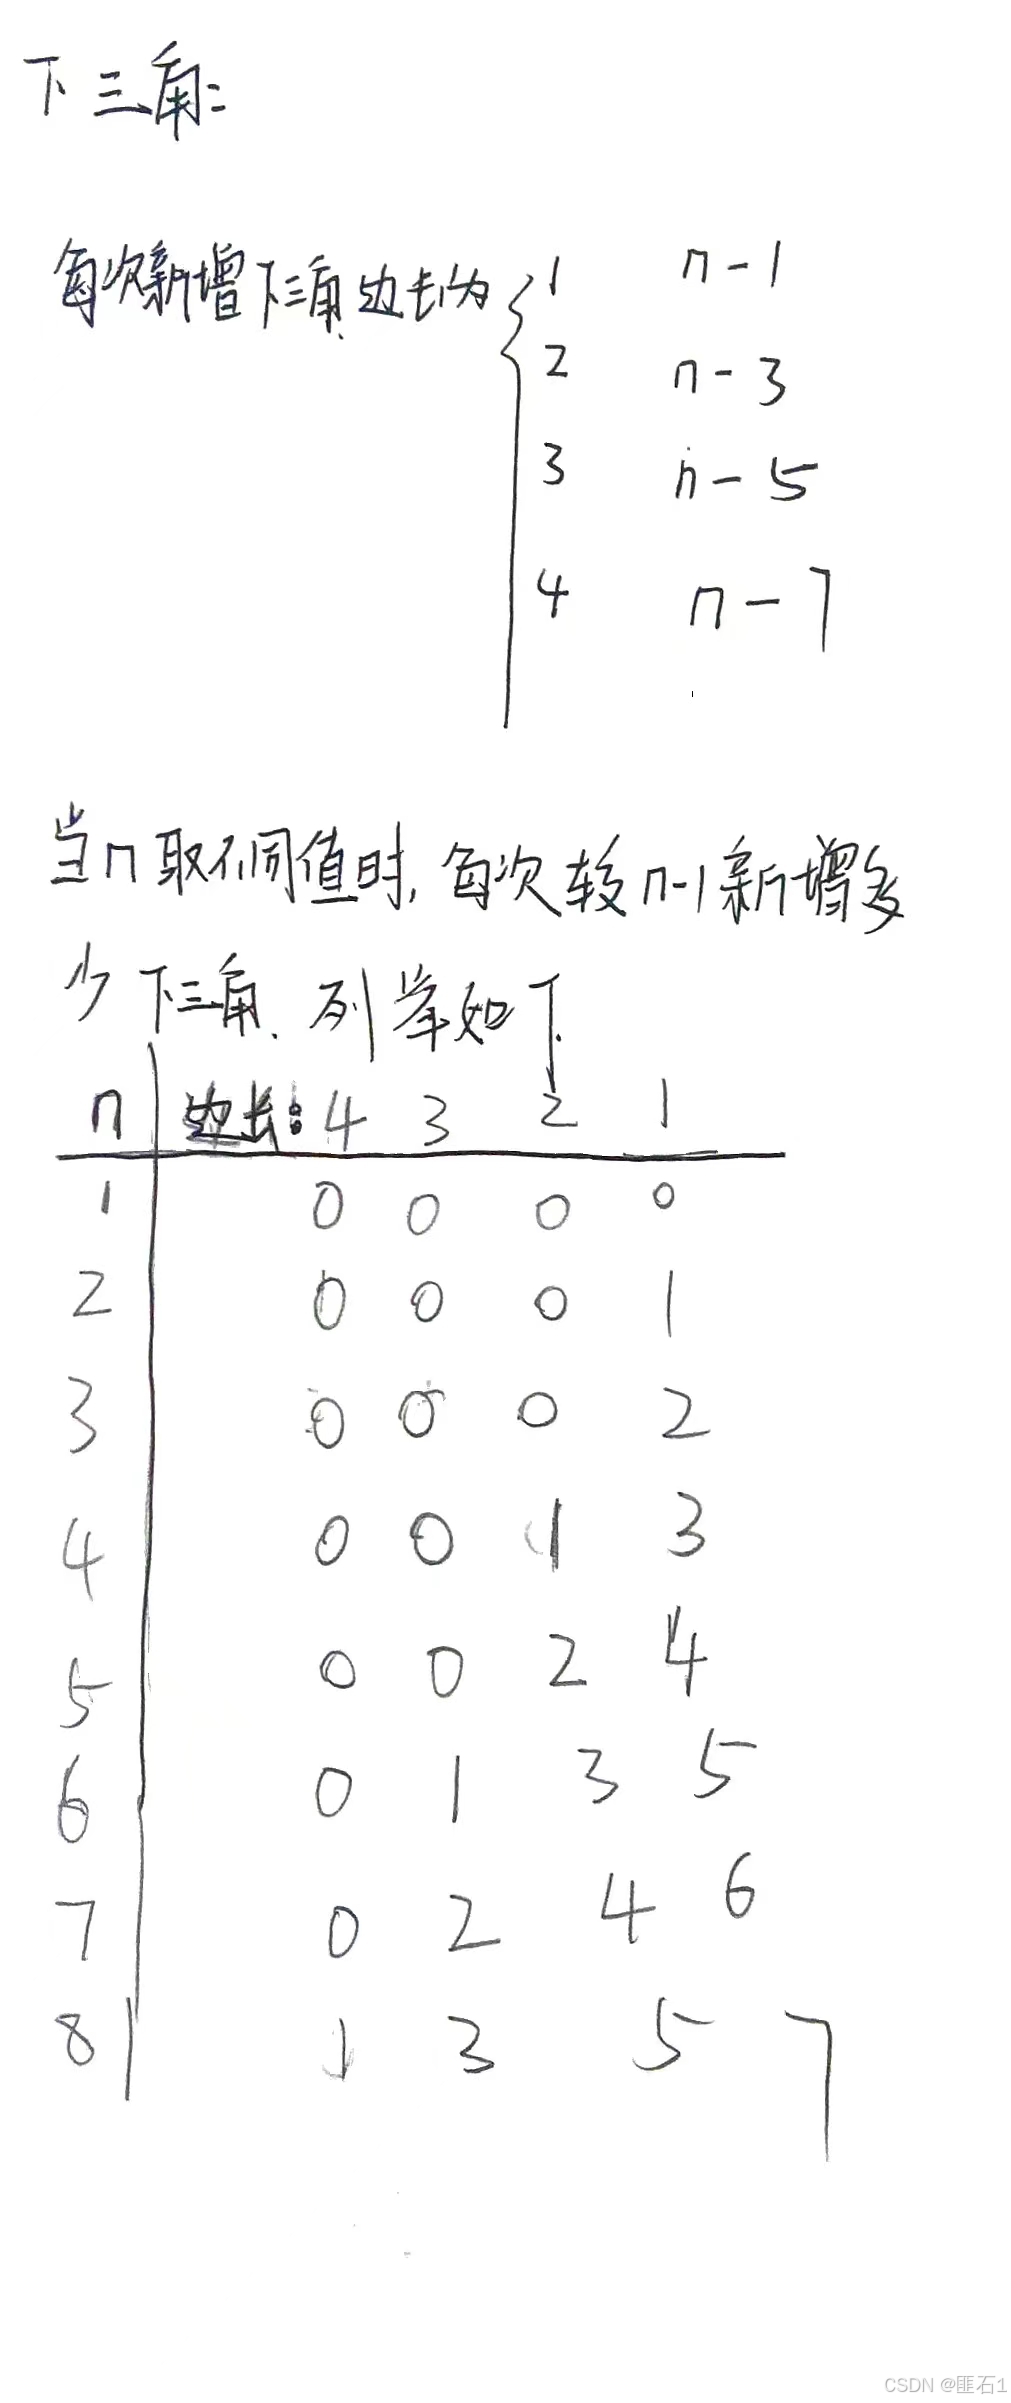 下三角:
每次新增下三角边长为 1 n-1
2 n-3
3 n-5
4 n-7
当n取不同值时,每次较n-1新增多
少下三角、列举如下
n 边长: 4 3 2 1
1 0 0 0 0
2 0 0 0 1
3 0 0 0 2
4 0 0 1 3
5 0 0 2 4
6 0 1 3 5
7 0 2 4 6
8 1 3 5 7
CSDN @匪石1